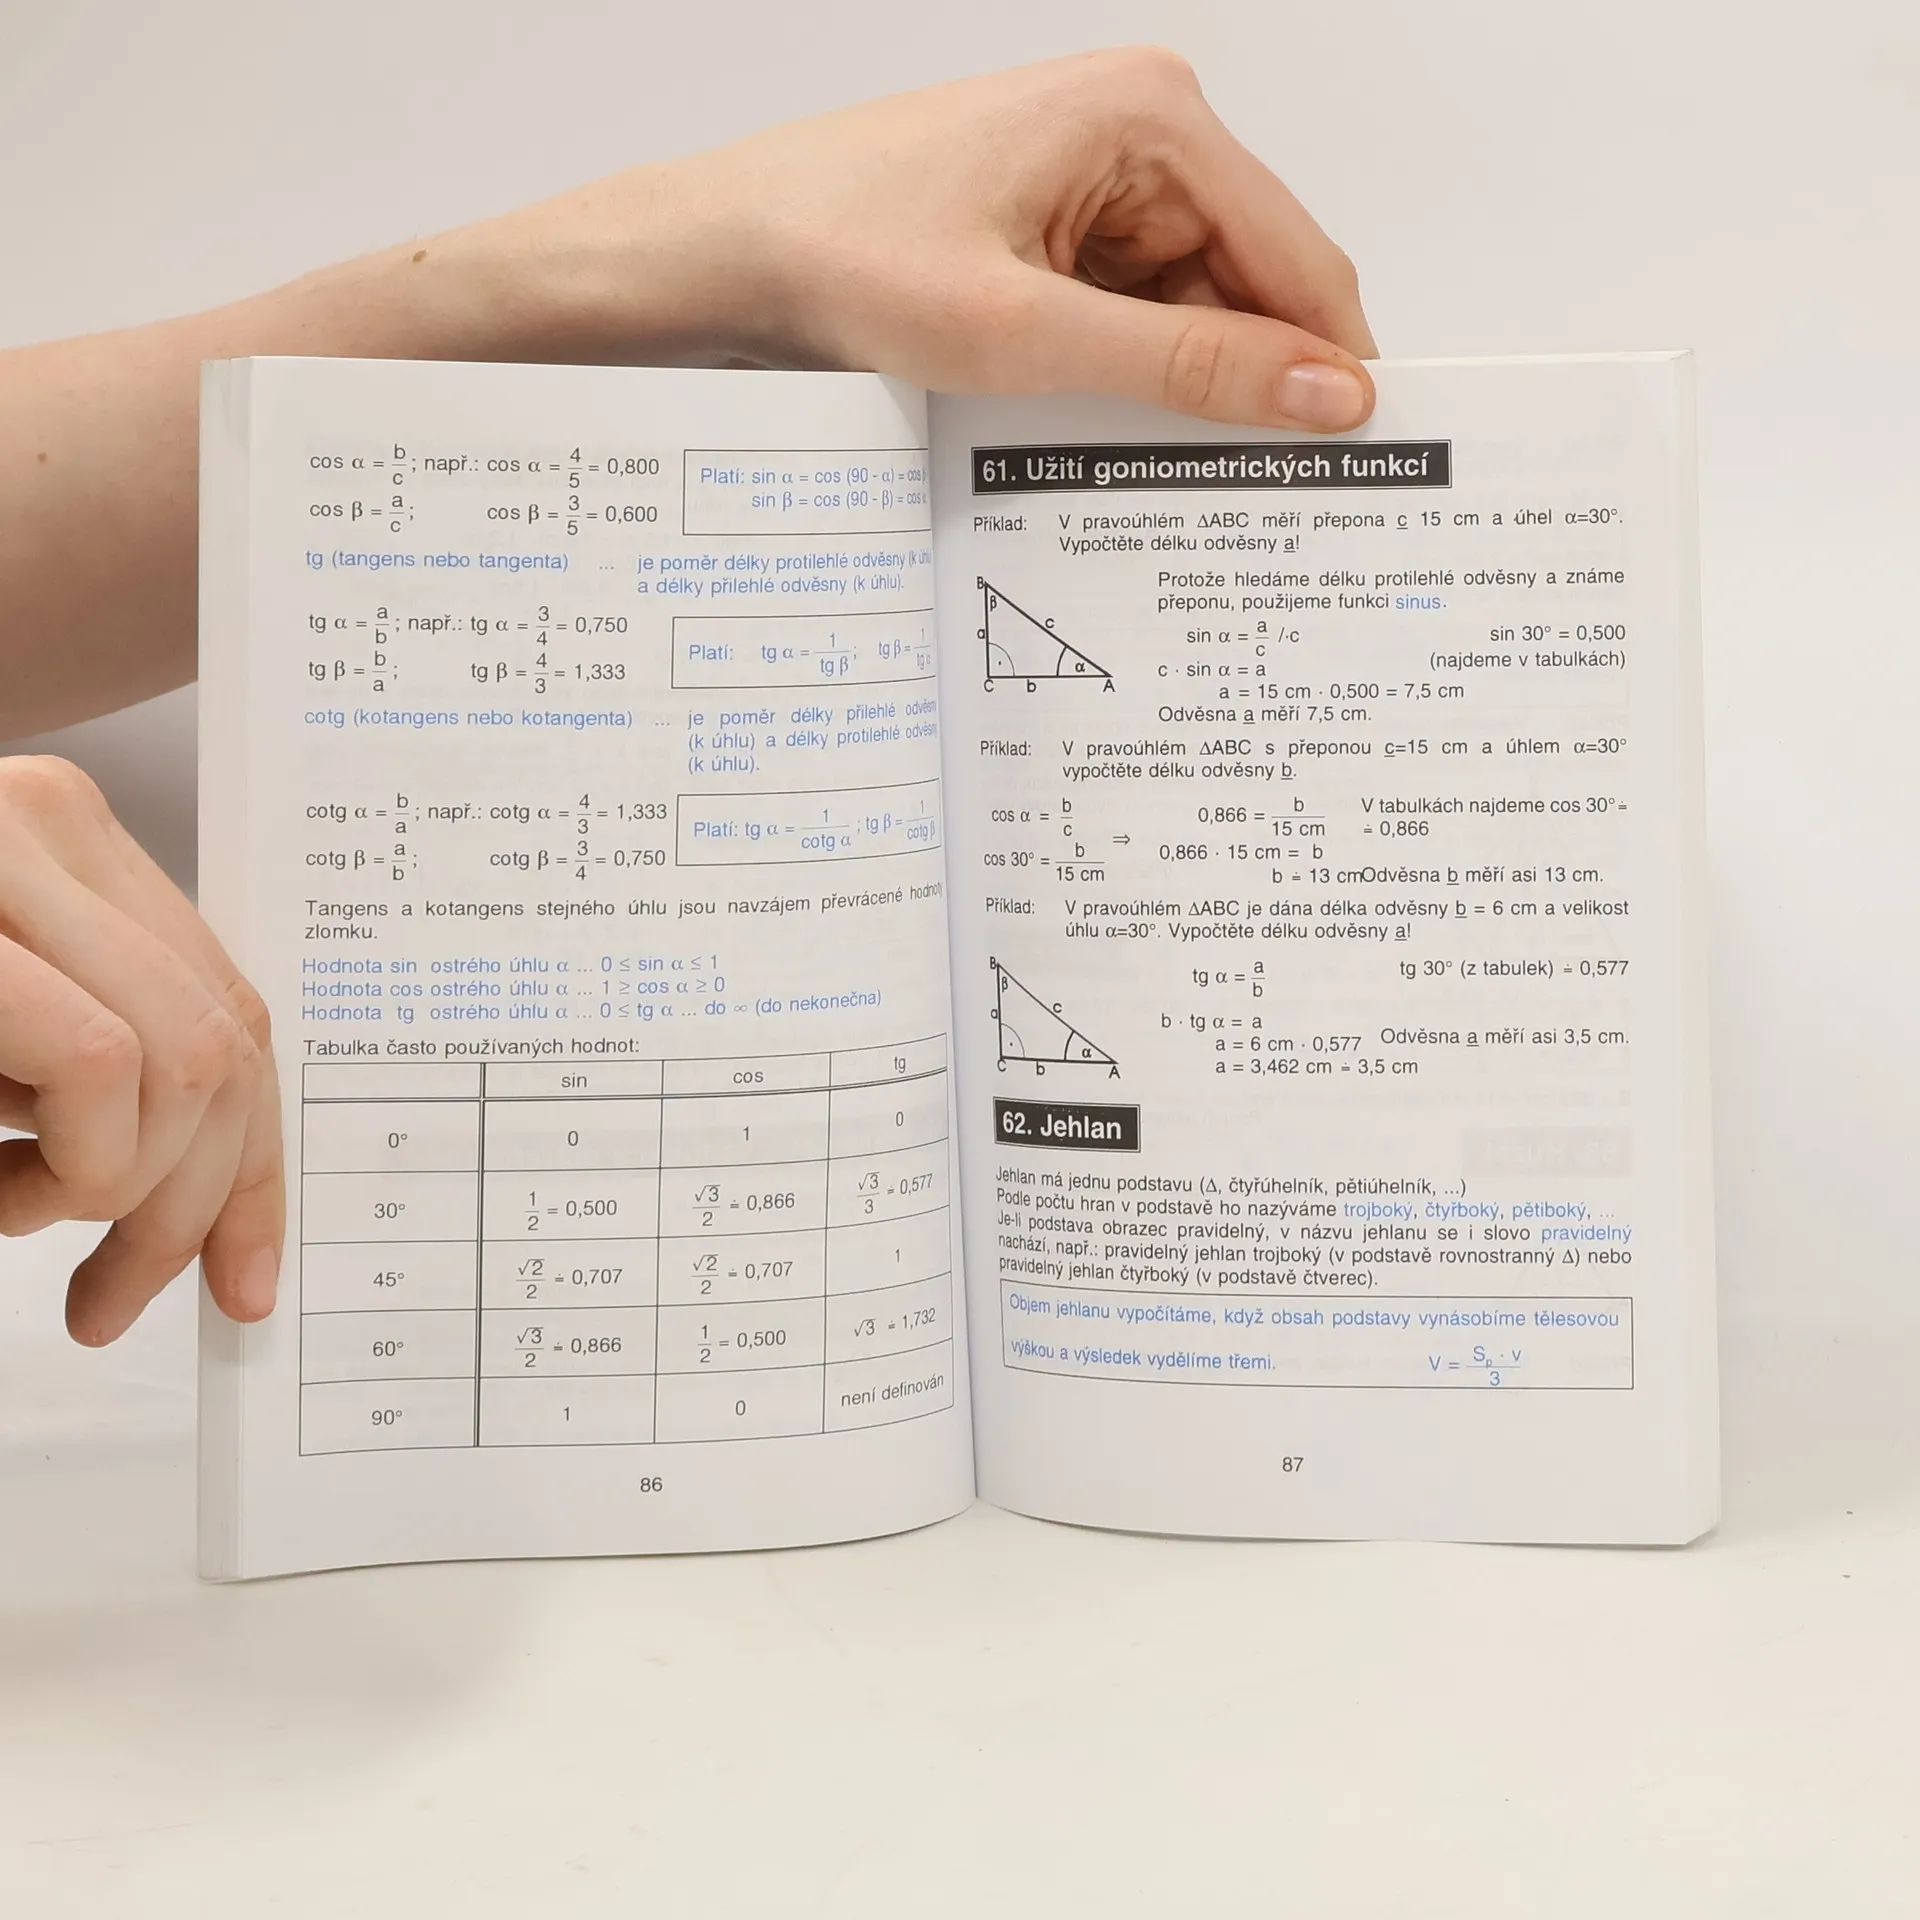 cos α = b/c ; např.: cos α = 4/5 = 0,800
cos β = a/c ; cos β = 3/5 = 0,600
Platí: sin α = cos (90 - α) = cos
sin β = cos (90 - β) = cos
tg (tangens nebo tangenta) ... je poměr délky protilehlé odvěsny (k
a délky přilehlé odvěsny (k úhlu).
tg α = a/b ; např.: tg α = 3/4 = 0,750
tg β = b/a ; tg β = 4/3 = 1,333
Platí: tg α = 1/tg β ; tg β = 1/tg α
cotg (kotangens nebo kotangenta) ... je poměr délky přilehlé
(k úhlu) a délky protilehlé
(k úhlu).
cotg α = b/a ; např.: cotg α = 4/3 = 1,333
cotg β = a/b ; cotg β = 3/4 = 0,750
Platí: tg α = 1/cotg α ; tg β = 1/cotg β
Tangens a kotangens stejného úhlu jsou navzájem převrácené
zlomku.
Hodnota sin ostrého úhlu α ... 0 ≤ sin α ≤ 1
Hodnota cos ostrého úhlu α ... 1 ≥ cos α ≥ 0
Hodnota tg ostrého úhlu α ... 0 ≤ tg α ... do ∞ (do nekonečna)
Tabulka často používaných hodnot:
sin cos tg
0° 0 1 0
30° 1/2 = 0,500 √3/2 ≐ 0,866 √3/3 ≐ 0,577
45° √2/2 ≐ 0,707 √2/2 ≐ 0,707 1
60° √3/2 ≐ 0,866 1/2 = 0,500 √3 ≐ 1,732
90° 1 0 není definován
86
61. Užití goniometrických funkcí
Příklad: V pravoúhlém ΔABC měří přepona c 15 cm a úhel α=30°.
Vypočtěte délku odvěsny a!
B β c a α C b A
Protože hledáme délku protilehlé odvěsny a známe
přeponu, použijeme funkci sinus.
sin α = a/c /·c sin 30° = 0,500
c · sin α = a (najdeme v tabulkách)
a = 15 cm · 0,500 = 7,5 cm
Odvěsna a měří 7,5 cm.
Příklad: V pravoúhlém ΔABC s přeponou c=15 cm a úhlem α=30°
vypočtěte délku odvěsny b.
cos α = b/c ⇒ 0,866 = b/15 cm V tabulkách najdeme cos 30° ≐
≐ 0,866
cos 30° = b/15 cm 0,866 · 15 cm = b
b ≐ 13 cm Odvěsna b měří asi 13 cm.
Příklad: V pravoúhlém ΔABC je dána délka odvěsny b = 6 cm a velikost
úhlu α=30°. Vypočtěte délku odvěsny a!
B β c a α C b A
tg α = a/b tg 30° (z tabulek) ≐ 0,577
b · tg α = a
a = 6 cm · 0,577 Odvěsna a měří asi 3,5 cm.
a = 3,462 cm ≐ 3,5 cm
62. Jehlan
Jehlan má jednu podstavu (Δ, čtyřúhelník, pětiúhelník, ...)
Podle počtu hran v podstavě ho nazýváme trojboký, čtyřboký, pětiboký, ...
Je-li podstava obrazec pravidelný, v názvu jehlanu se i slovo pravidelný
nachází, např.: pravidelný jehlan trojboký (v podstavě rovnostranný Δ) nebo
pravidelný jehlan čtyřboký (v podstavě čtverec).
Objem jehlanu vypočítáme, když obsah podstavy vynásobíme tělesovou
výškou a výsledek vydělíme třemi. V = Sₚ · v/3
87